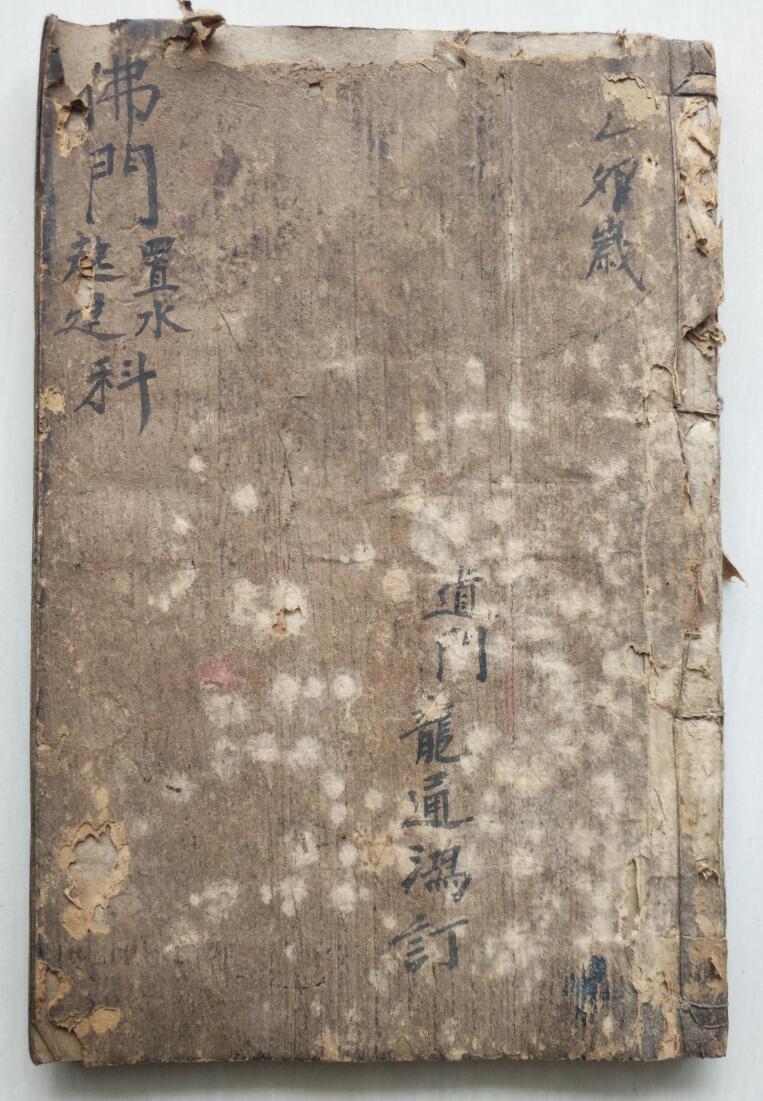 乙夘歲
道門龍通鴻訂
佛門
置水
建
科